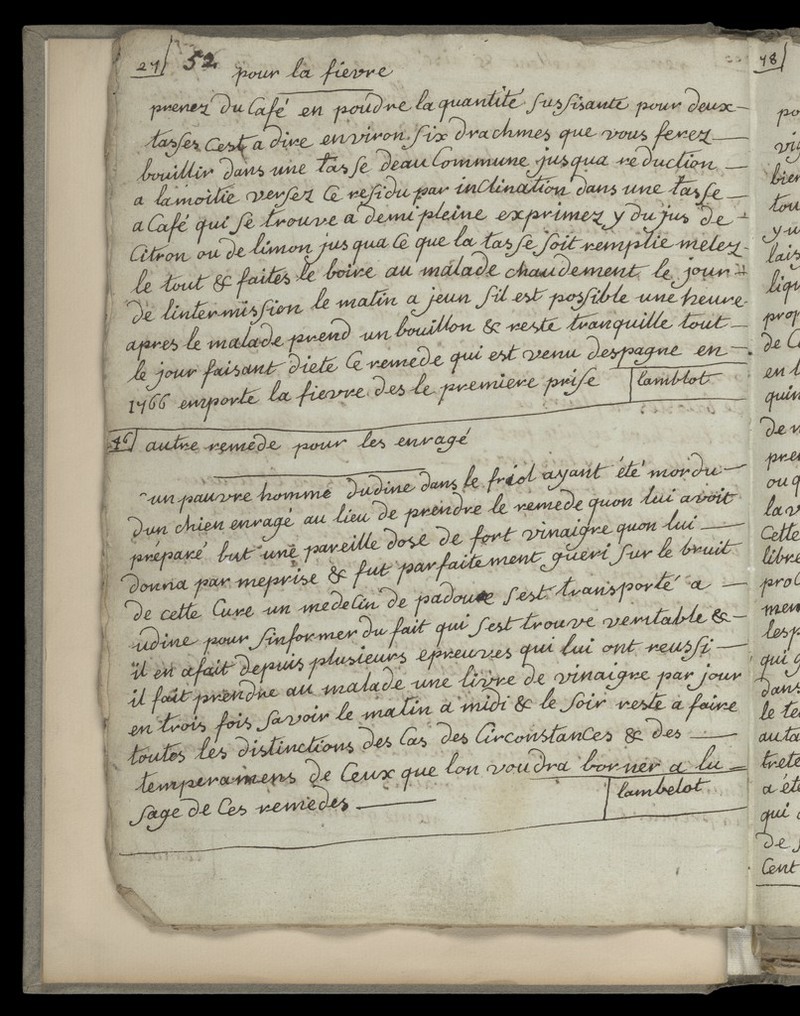 27/ 52 pour la fievre
prenez du Café en poudre la quantité suffisante pour deux
tasses Cest a dire environ six drachmes que vous ferez
bouillir dans une tasse deau Commune jusqua reduction
a lamoitie versez Ce residu par inclination dans une tasse
a Café qui se trouve a demi pleine exprimez y du jus de
Citron ou de limon jusqua Ce que la tasse soit remplie melez
le tout & faites le boire au malade chaudement le jour
de lintermission le matin a jeun sil est possible une heure
apres le malade prend un bouillon & reste tranquille tout
le jour faisant diete Ce remede qui est venu despagne en
1766 emporte la fievre des le premiere prise lamblot
autre remede pour les enragé
un pauvre homme dudine dans le friol ayant été mordu
dun chien enragé au lieu de prendre le remede quon lui avoit
preparé but une pareille dose de fort vinaigre quon lui
donna par meprise & fut parfaitement gueri sur le bruit
de cette Cure un medecin de padoue sest transporté a
udine pour sinformer du fait qui sest trouve veritable &
il en afait depuis plusieurs epreuves qui lui ont reussi
il fait prendre au malade une livre de vinaigre par jour
en trois fois savoir le matin a midi & le soir reste a faire
toutes les distinctions des Cas des Circonstances & des
temperamens de Ceux que lon voudra borner a lu=
sage de Ces remedes lambelot
48/
de
en
pre
ou
Cette
libre
dans
qui
de
Cent